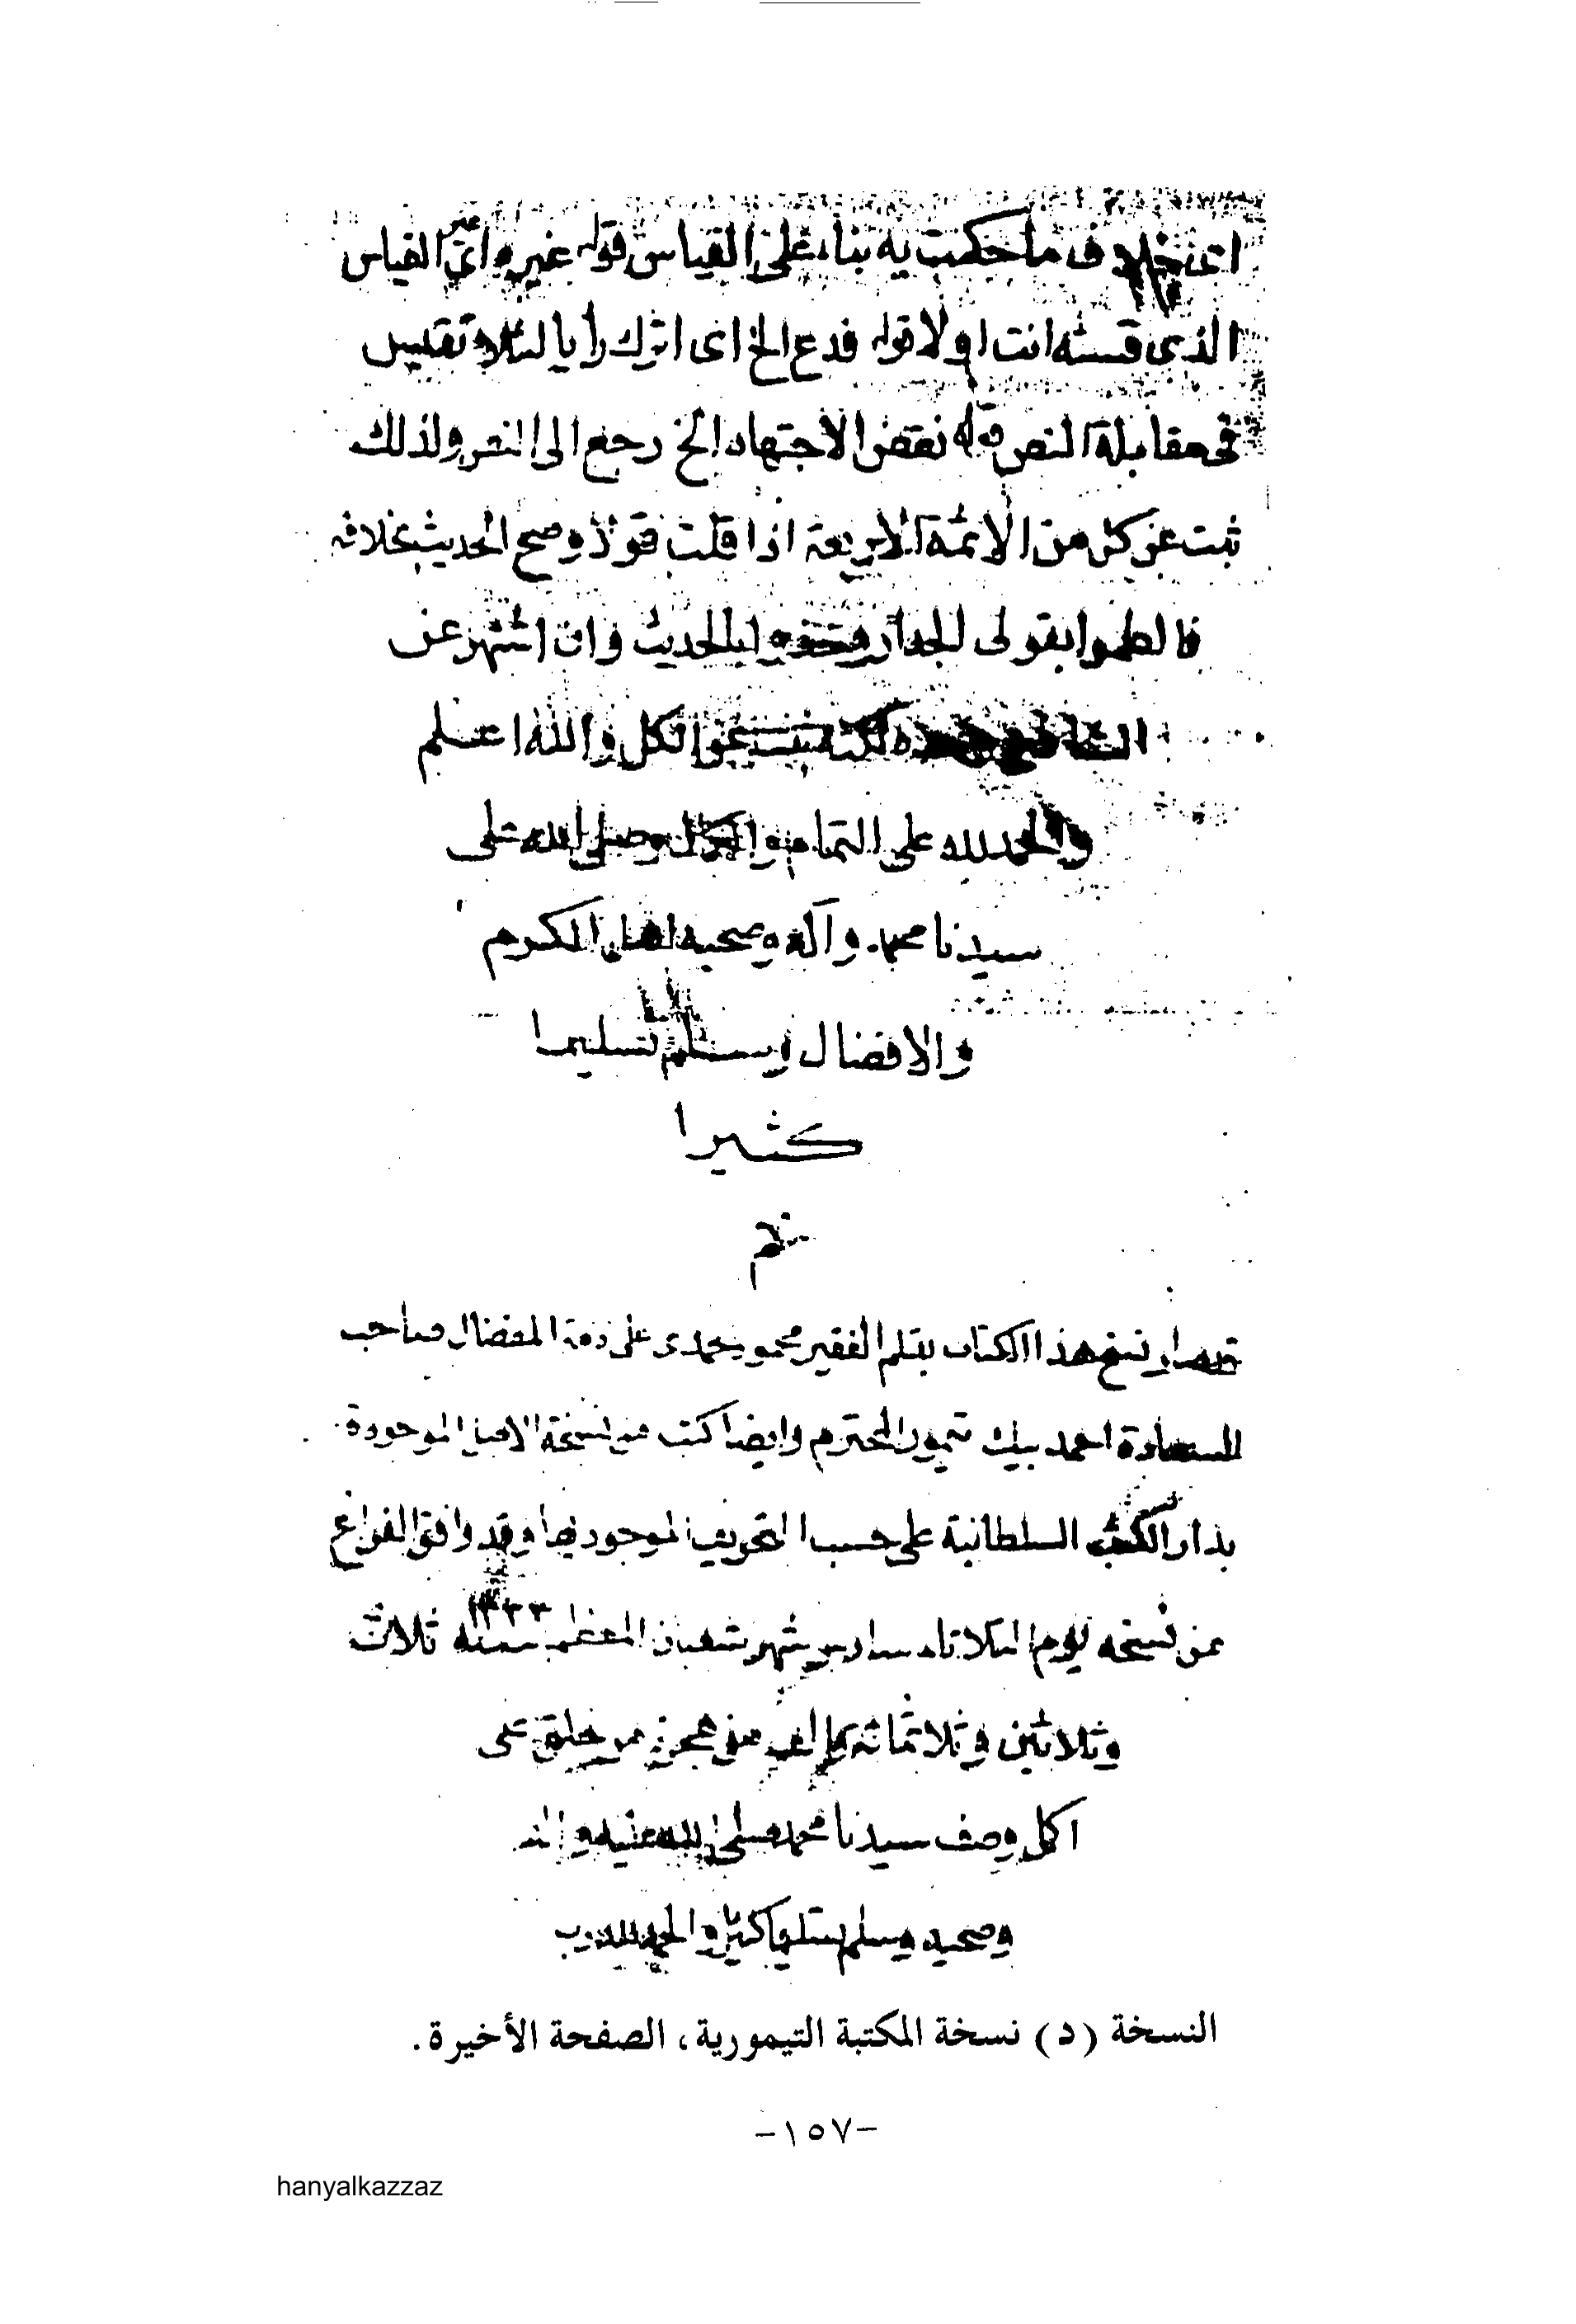 اى خلاف ما حكمت به بناء على القياس قوله غيره اى غير القياس
الذى قسته انت اولا قوله فدع الخ اى اترك رأيا لئلا تقيس
فى مقابلة النص قوله نقض الاجتهاد الخ رجع الى النص ولذلك
ثبت عن كل من الائمة الاربعة اذا قلت قولا وصح الحديث بخلافه
فالطموا بقولى الجدار وخذوا بالحديث وان اشتهر عن
الشافعى لكنه عن الكل والله اعلم
والحمد لله على التمام والكمال وصلى الله على
سيدنا محمد وآله وصحبه اهل الكرم
والافضال وسلم تسليما
كثيرا
تم
قد صار نسخ هذا الكتاب بقلم الفقير محمود حمدى على ذمة المفضال صاحب
السعادة احمد بيك تيمور المحترم وايضا كتب من نسخة الاصل الموجودة
بدار الكتب السلطانية على حسب التحريف الموجود بها وقد وافق الفراغ
من نسخه يوم الثلاثاء سادس شهر شعبان المعظم سنة ١٣٣٣ ثلاث
وثلاثين وثلاثمائة بعد الف من هجرة من خلق على
اكمل وصف سيدنا محمد صلى الله عليه وآله
وصحبه وسلم تسليما كثيرا والحمد لله رب
النسخة (د) نسخة المكتبة التيمورية، الصفحة الأخيرة.
-١٥٧-
hanyalkazzaz